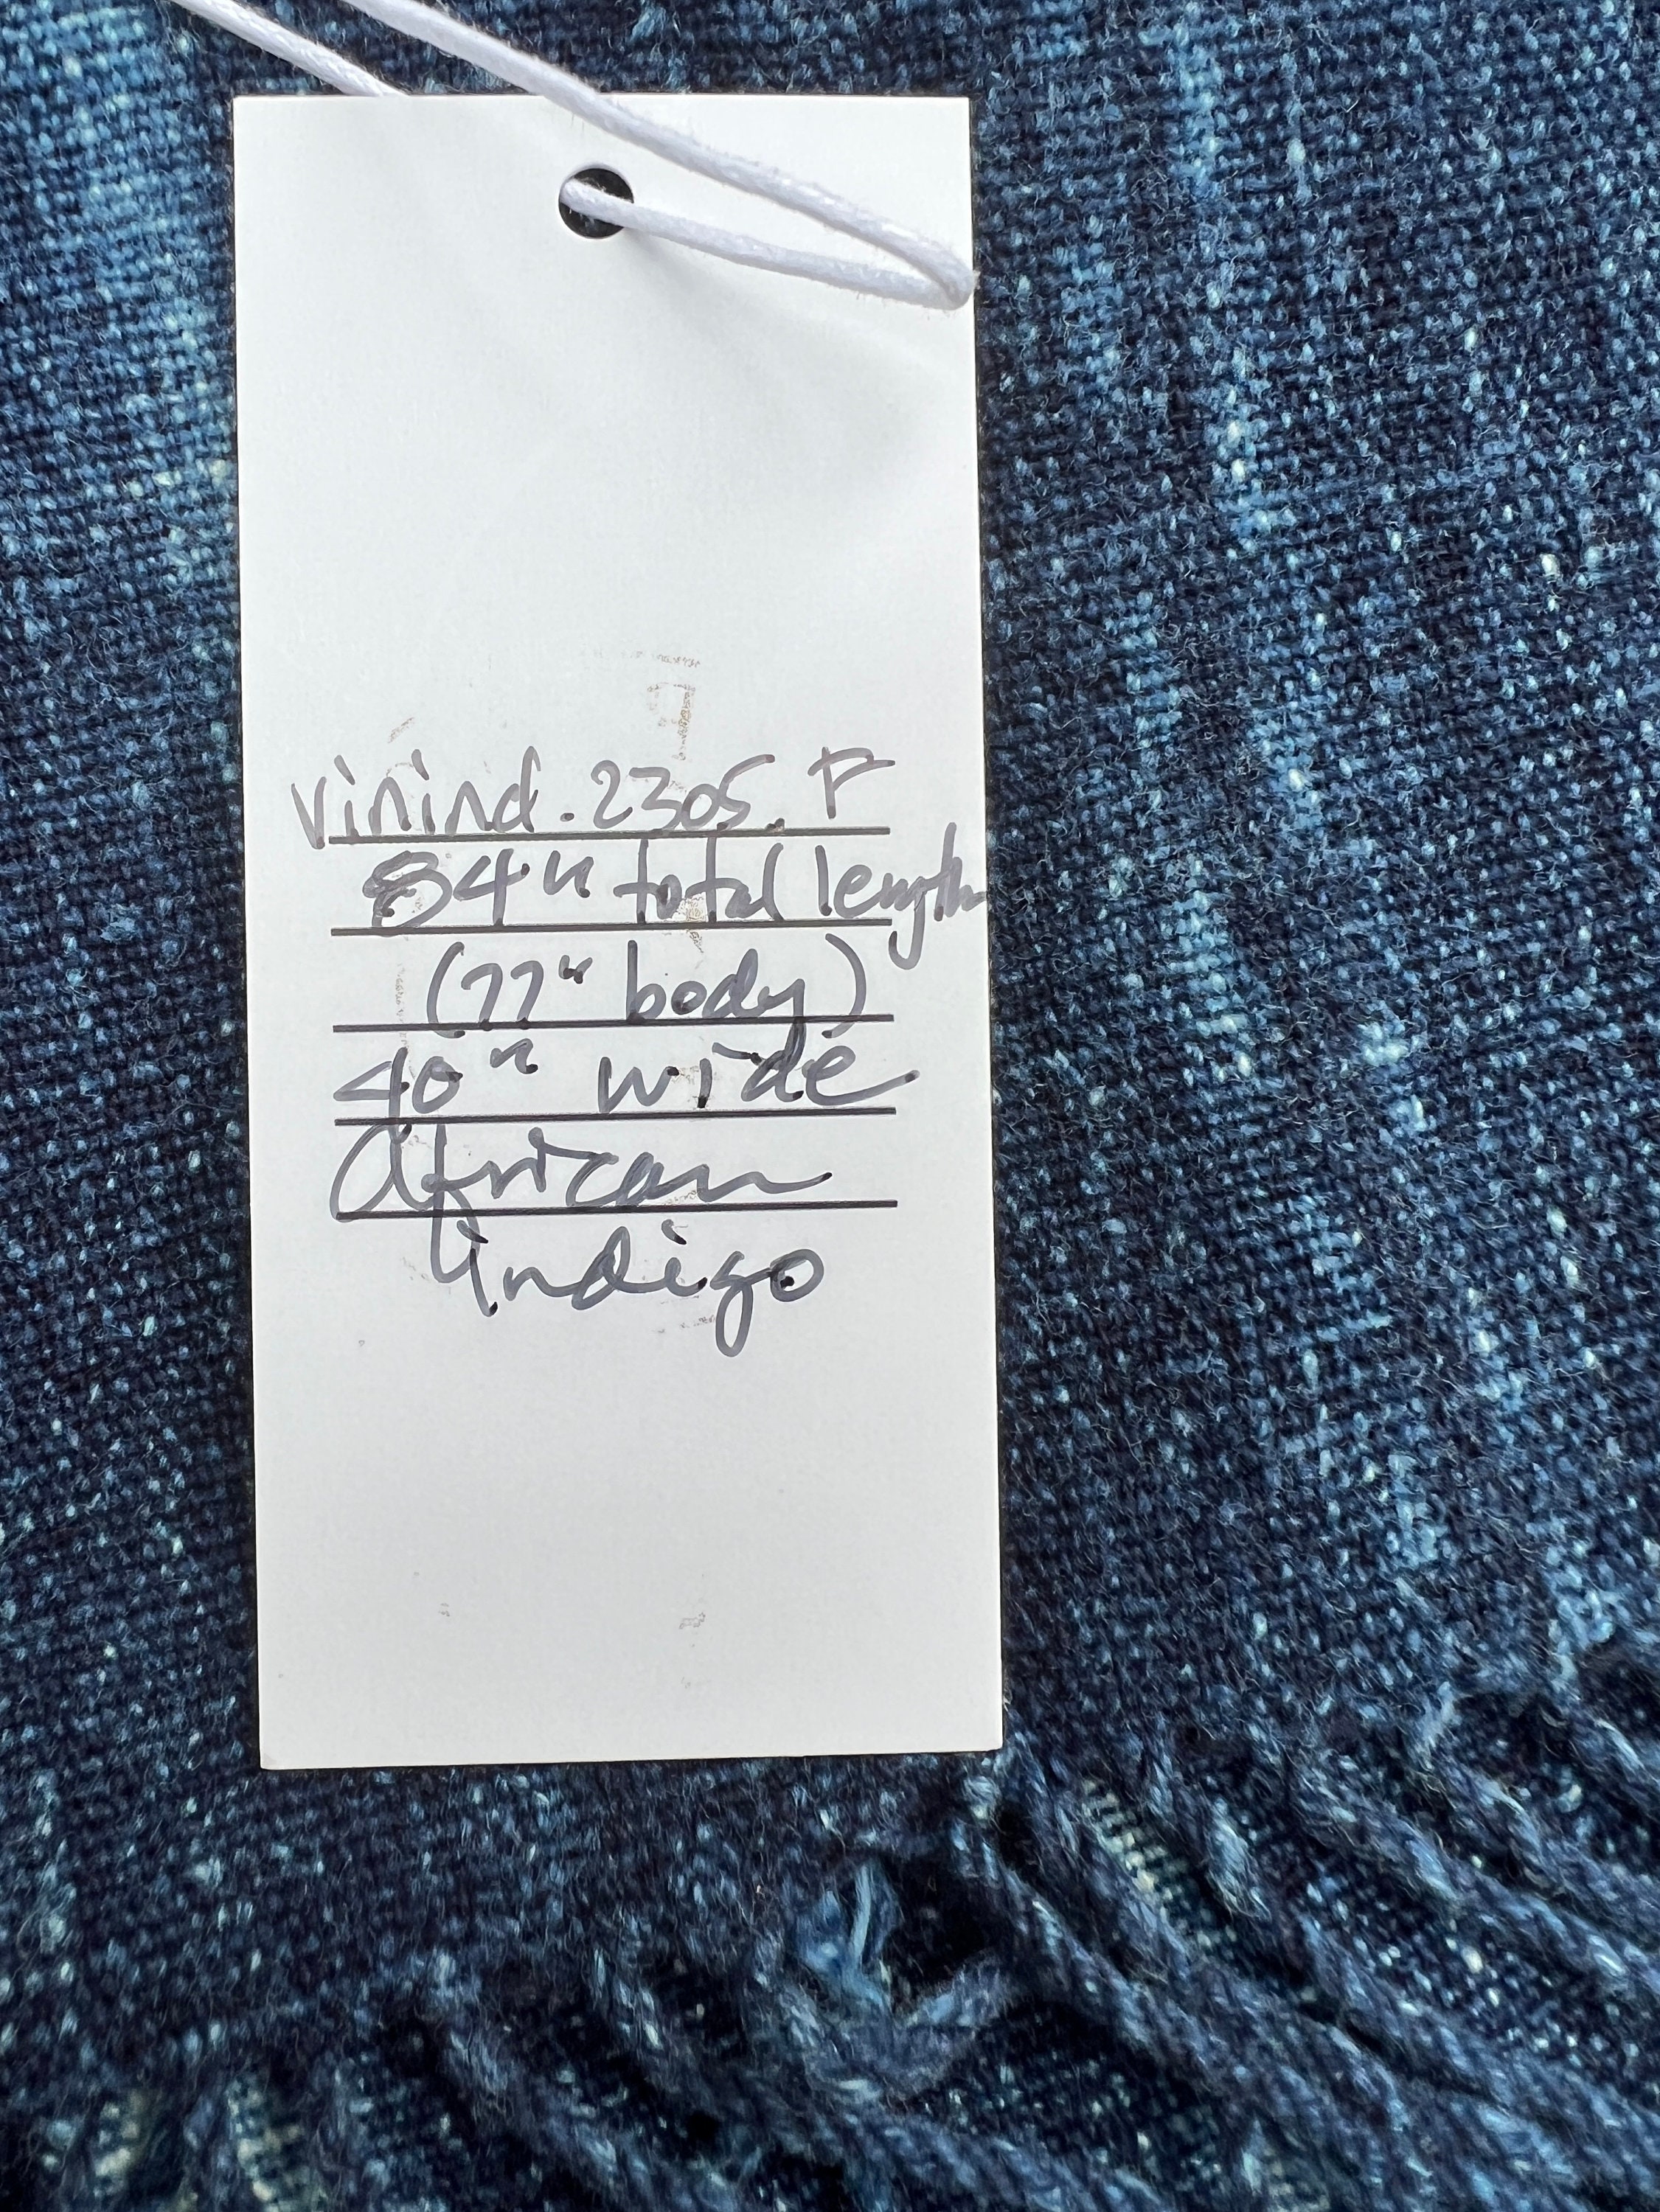 vinind.2305.F
84" total length
(77" body)
40" wide
African
indigo